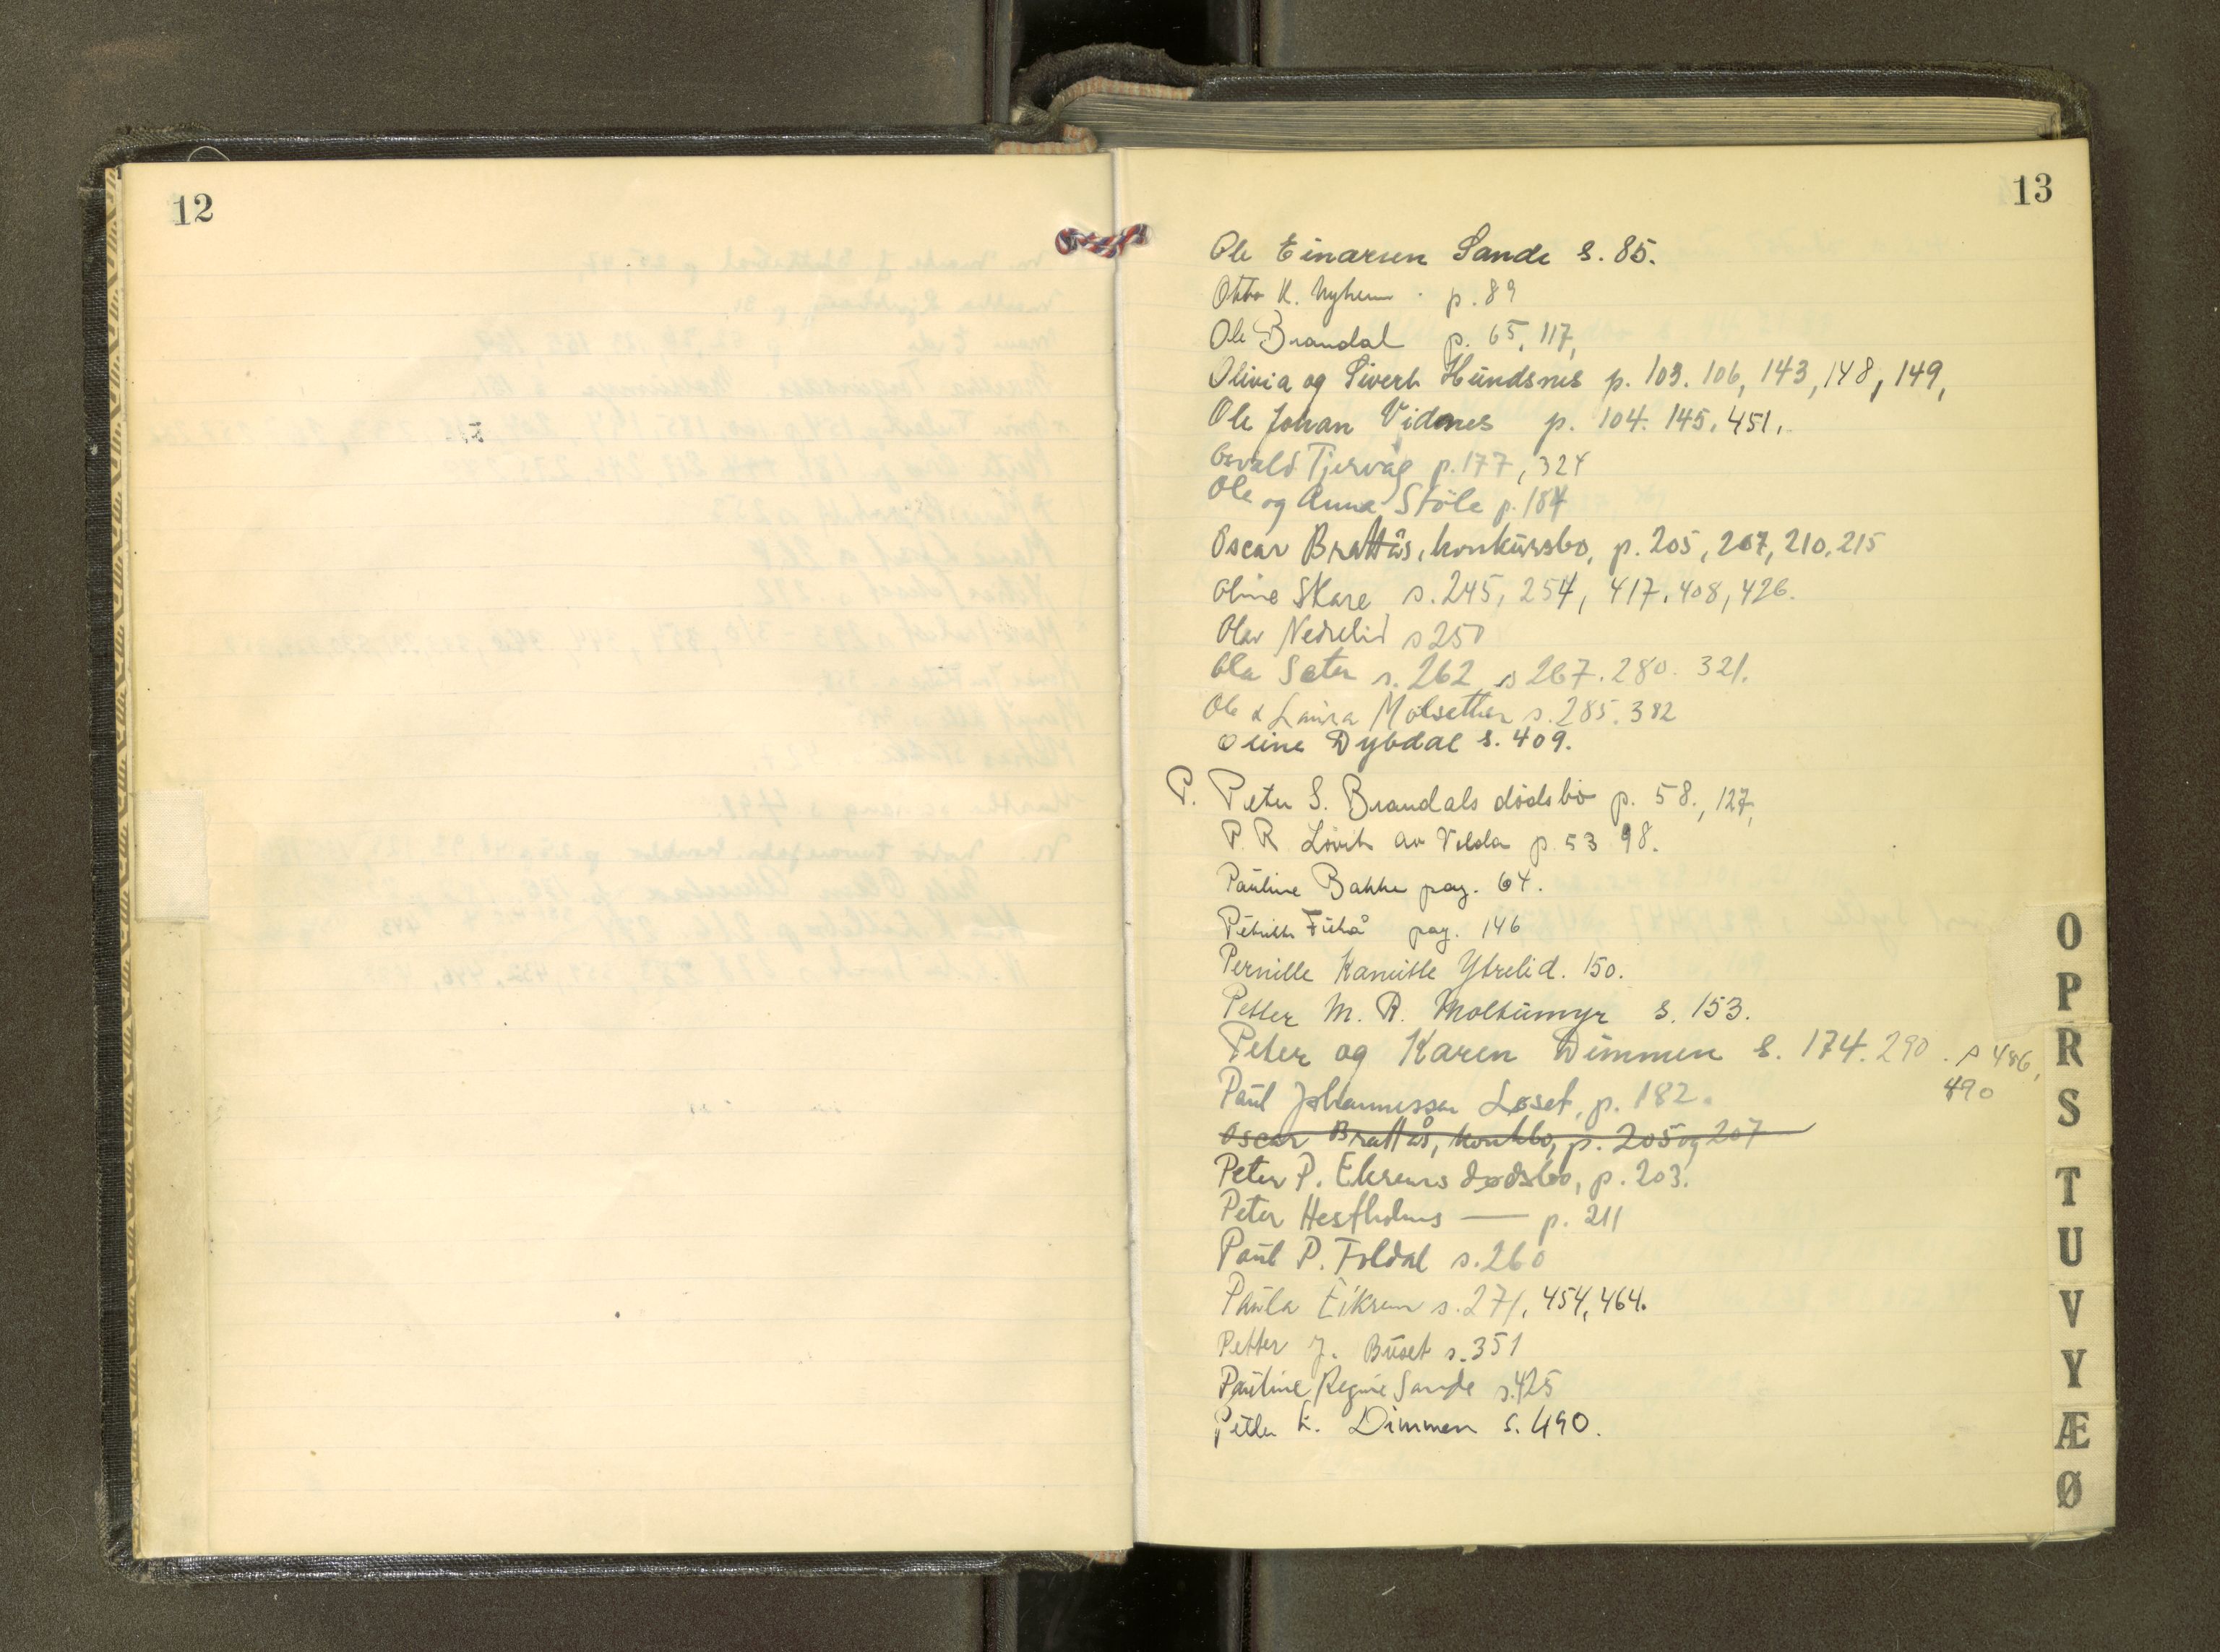 12
13
Ole Einarsen Sande s. 85.
Otto K. Nyhem p. 89
Ole Brandal p. 65, 117,
Olivia og Sivert Hundsnes p. 103. 106, 143, 148, 149,
Ole Johan Vidnes p. 104. 145. 451.
Osvald Tjervåg p. 177, 324
Ole og Anna Støle p. 184
Oscar Brattås, konkursbo, p. 205, 207, 210, 215
Oline Skare s. 245, 254, 417. 408, 426.
Olav Nedrelid s 250
Ola Sæter s. 262 s 267. 280. 321.
Ole & Laura Molsether s. 285. 382
Oline Dybdal s. 409.
P. Peter S. Brandals dødsbo p. 58., 127,
P. R. Løvik av Volda p. 53 98.
Pauline Bakke pag. 64.
pag. 146
Pernille Kamille Ytrelid. 150.
Petter M. R. Moltumyr s. 153.
Peter og Karen Dimmen s. 174. 290. s 486,
490
Paul Johannessen Løset, p. 182.
Oscar Brattås, konkbo, p. 205 og 207
Peter P. Eksrems dødsbo, p. 203.
Peter Hestholms — p. 211
Paul P. Foldal s. 260
Paula Eiksrem s. 271, 454, 464.
Petter J. Buset s. 351
Pauline Regine Sande s. 425
Petter E. Dimmen s. 490.
O
P
R
S
T
U
V
Y
Æ
Ø